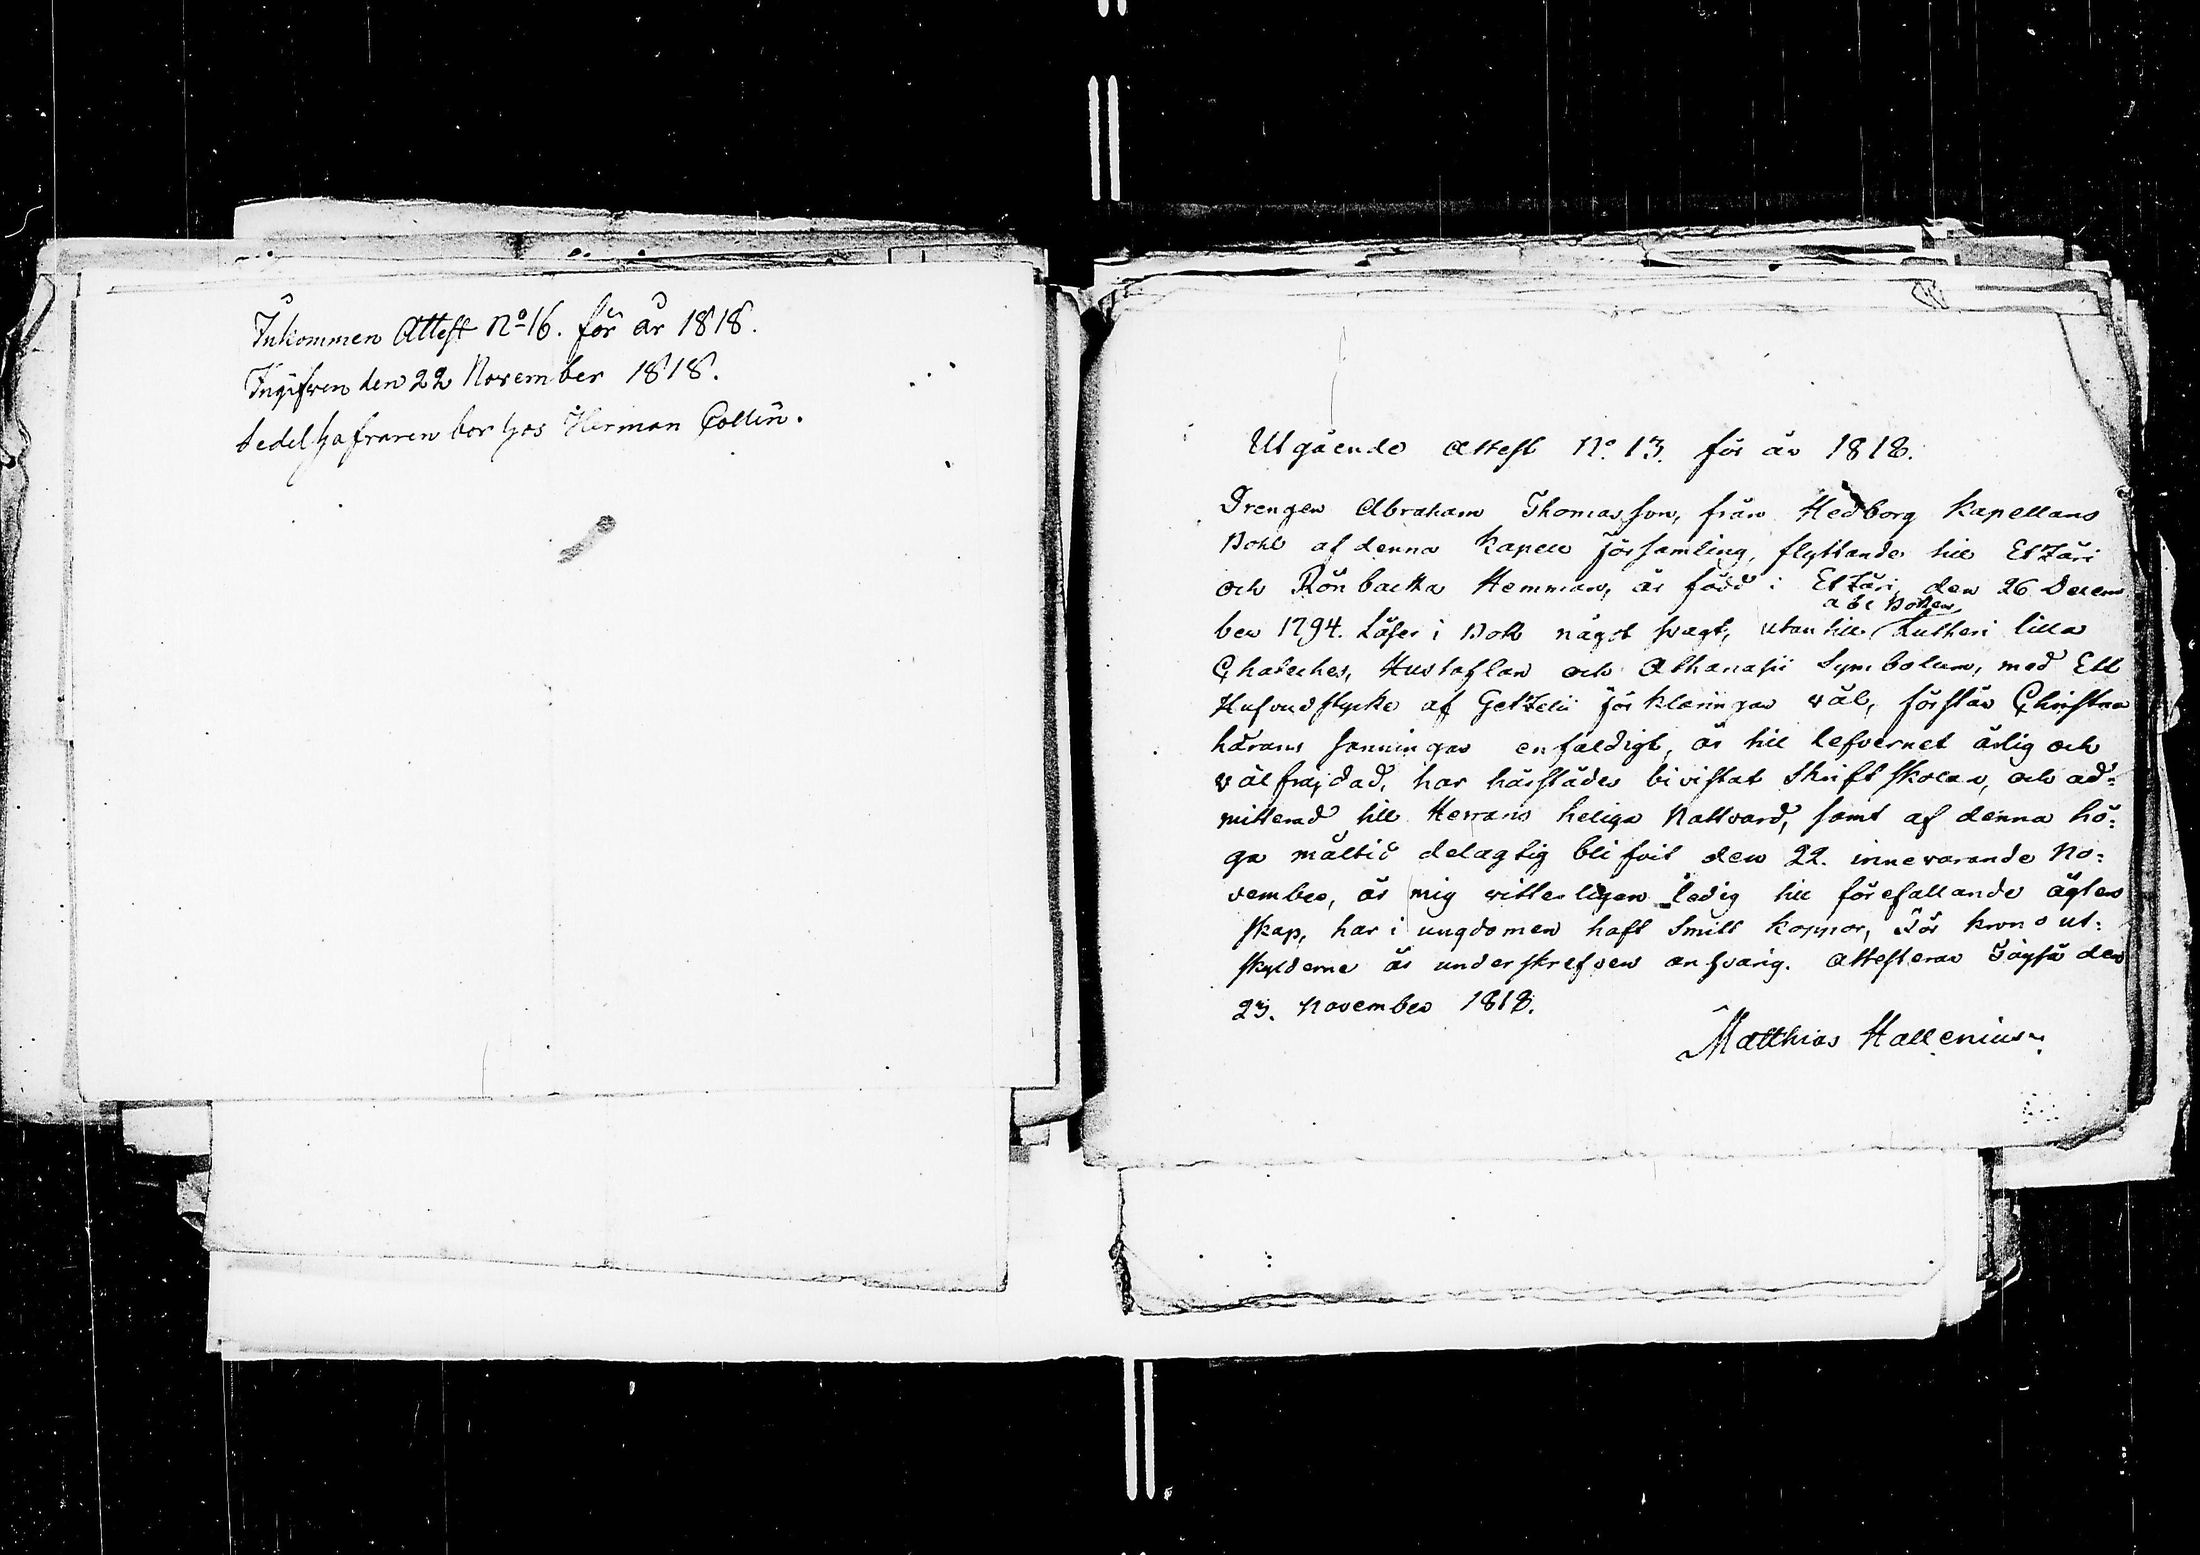 Inkommen Attest No 16. för år 1818.
Ingifven den 22 November 1818.
Sedelhafvaren bor hos Herman Collin.
Utgående Attest No. 13. för år 1818.
Drengen Abraham Thomasson, från Hedborg Kapellans
Bohl af denna Kapell församling, flyttande till Etzäri
och Rönbacka Hemman, är född i Etzäri, den 26 Decem
abc Boken,
ber 1794. Läser i Bok något svagt, utantill Lutheri lilla
Chateches, Hustaflan och Athanasii Symbolum, med Ett
Hufvudstycke af Getzelii förklaringar väl, förstår Christna
lärans sanningar enfaldigt, är till lefvernet ärlig och
välfrejdad, har härstädes bivistat Skriftskolan, och ad:
mitterad till Herrans heliga Nattvard, samt af denna hö:
ga måltid delagtig blifvit den 22. innevarande No:
vember, är mig vitterligen ledig till förefallande ägten
skap, har i ungdomen haft Smitt koppor, För krono ut:
skylderne är underskrefven ansvarig. Attesteras Töysä den
23. November 1818.
Matthias Hallenius